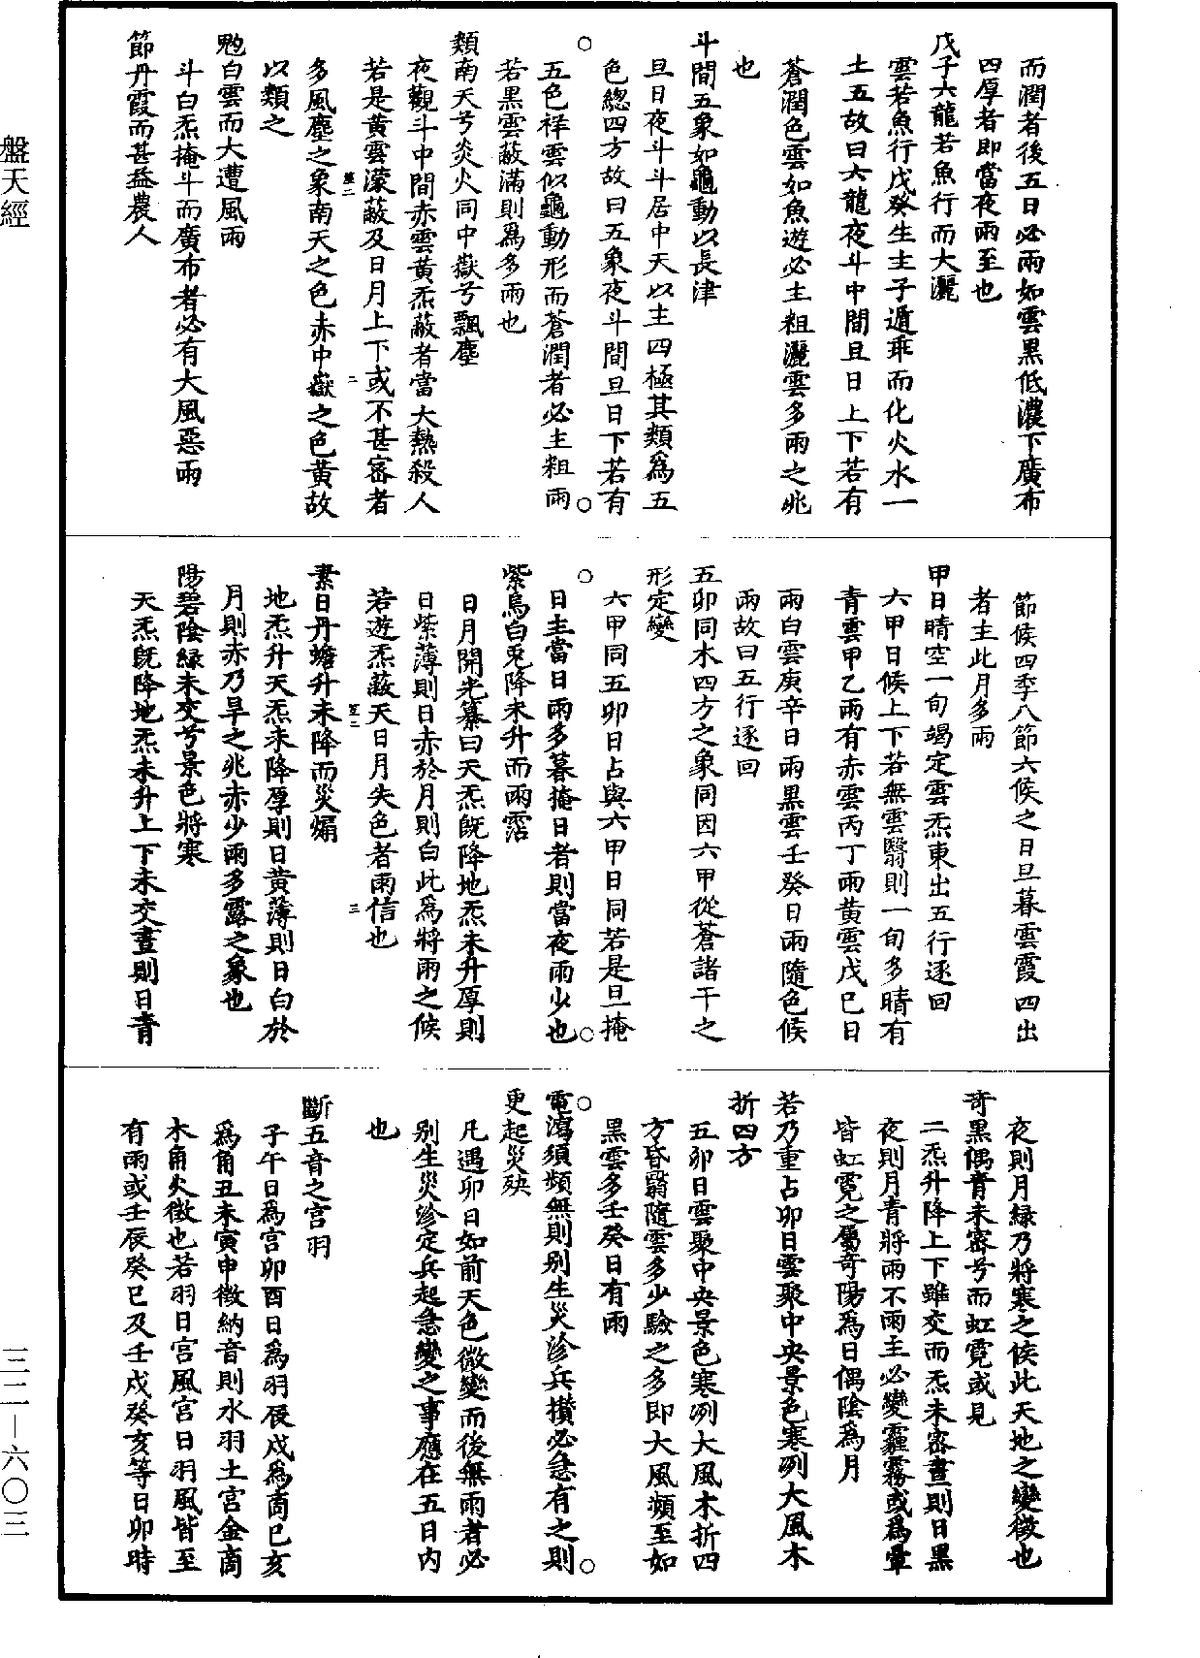 盤天經
而潤者後五日必雨如雲黑低濃下廣布
四厚者即當夜雨至也
戊子六龍若魚行而大灑
雲若魚行戊癸生主子遁乖而化火水一
土五故曰六龍夜斗中間且日上下若有
蒼潤色雲如魚遊必主粗灑雲多雨之兆
也
斗間五象如龜動以長津
旦日夜斗斗居中天以主四極其類為五
色緫四方故曰五象夜斗間旦日下若有
五色祥雲似龜動形而蒼潤者必主粗雨
若黑雲蔽滿則為多雨也
類南天兮炎火同中嶽兮飄塵
夜觀斗中間赤雲黃炁蔽者當大熱殺人
若是黃雲濛蔽及日月上下或不甚密者
多風塵之象南天之色赤中嶽之色黃故
以類之
勉白雲而大遭風雨
斗白炁掩斗而廣布者必有大風惡雨
節丹霞而甚益農人
節候四季八節六候之日旦暮雲霞四出
者主此月多雨
甲日晴空一旬竭定雲炁東出五行逐回
六甲日候上下若無雲翳則一旬多晴有
青雲甲乙雨有赤雲丙丁雨黃雲戊巳日
雨白雲庚辛日雨黑雲壬癸日雨隨色候
雨故曰五行逐回
五卯同木四方之象同因六甲從蒼諸干之
形定變
六甲同五卯日占與六甲日同若是旦掩
日主當日雨多暮掩日者則當夜雨少也
紫烏白兎降未升而雨霑
日月開光纂曰天炁旣降地炁未升厚則
日紫薄則日赤於月則白此為將雨之候
若遊炁蔽天日月失色者雨信也
素日丹蟾升未降而災煸
地炁升天炁未降厚則日黃薄則日白於
月則赤乃旱之兆赤少雨多露之象也
陽碧陰緑未交兮景色將寒
天炁旣降地炁未升上下未交晝則日青
夜則月緑乃將寒之候此天地之變徵也
奇黑偶青未密兮而虹霓或見
二炁升降上下雖交而炁未密晝則日黑
夜則月青將雨不雨主必變霾霧或為暈
皆虹霓之屬奇陽為日偶陰為月
若乃重占卯日雲聚中央景色寒冽大風木
折四方
五卯日雲聚中央景色寒冽大風木折四
方昏翳隨雲多少驗之多即大風頻至如
黑雲多壬癸日有雨
電瀉須頻無則别生災沴兵攅必急有之則
更起災殃
凡遇卯日如前天色微變而後無雨者必
别生災沴定兵起急變之事應在五日内
也
斷五音之宫羽
子午日為宫卯酉日為羽辰戌為商巳亥
為角丑未寅申徵納音則水羽土宫金商
木角火徵也若羽日宫風宫日羽風皆至
有雨或壬辰癸巳及壬戌癸亥等日卯時
三二—六〇三